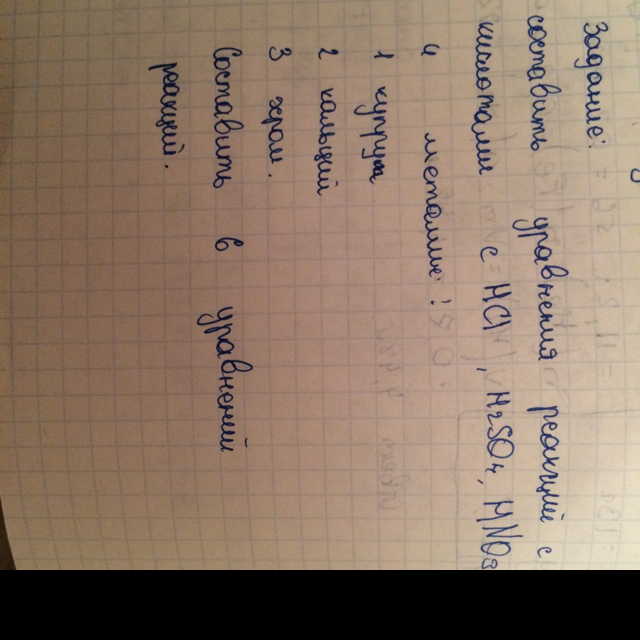 Задание:
составить уравнения реакций с
кислотами с HCl, H2SO4, HNO3
и металле!
1 купрум
2 кальций
3 ферм.
Составить 6 уравнений
ракций.